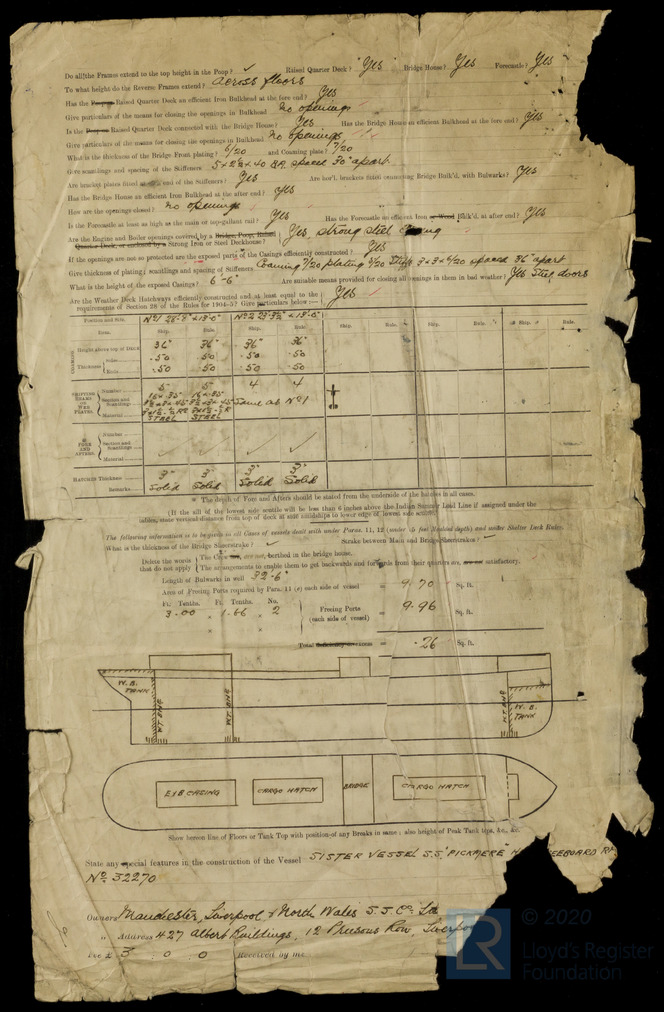 Do all the Frames extend to the top height in the Poop? ✓ Raised Quarter Deck? Yes Bridge House? Yes Forecastle? Yes
To what height do the Reverse Frames extend? across floors
Has the Poop or Raised Quarter Deck an efficient Iron Bulkhead at the fore end? Yes
Give particulars of the means for closing the openings in Bulkhead no openings
Is the Poop or Raised Quarter Deck connected with the Bridge House? Yes Has the Bridge House an efficient Bulkhead at the fore end? Yes
Give particulars of the means for closing the openings in Bulkhead no openings
What is the thickness of the Bridge Front plating? 6/20 and Coaming plate? 7/20
Give scantlings and spacing of the Stiffeners 5 x 2½ x 40 BA spaced 30" apart
Are bracket plates fitted at end of the Stiffeners? Yes Are brackets connecting Bridge Bulk'd. with Bulwarks? Yes
Has the Bridge House an efficient Iron Bulkhead at the after end? Yes
How are the openings closed? no openings
Is the Forecastle at least as high as the main or top-gallant rail? Yes Has the Forecastle an efficient Iron or Wood Bulk'd. at after end? Yes
Are the Engine and Boiler openings covered by a Bridge, Poop, Raised Yes, strong steel casing
Quarter Deck, or enclosed by a Strong Iron or Steel Deckhouse?
If the openings are not so protected are the exposed parts of the Casings efficiently constructed? Yes
Give thickness of plating; scantlings and spacing of Stiffeners Coaming 7/20 plating 5/20 Stiffs 3 x 3 x 6/20 spaced 36" apart
What is the height of the exposed Casings? 6'-6" Are suitable means provided for closing all openings in them in bad weather? Yes Steel doors
Are the Weather Deck Hatchways efficiently constructed and at least equal to the Yes
requirements of Section 28 of the Rules for 1904-5? Give particulars below:—
Position and Size. Nº1 28-9 x 13-0 Nº2 23-3½ x 13-0
Item. Ship. Rule. Ship. Rule. Ship. Rule. Ship. Rule. Ship. Rule.
COAMING Height above top of Deck 36" 36" 36" 36"
Thickness Sides .50 .50 .50 .50
Ends .50 .50 .50 .50
SHIFTING BEAMS OR WEB PLATES. Number 5 5 4 4
Section and Scantlings Same as Nº1
Material STEEL STEEL
FORE AND AFTERS. Number
Section and Scantlings ✓ ✓ ✓ ✓
Material
HATCHES Thickness 3" 3" 3" 3"
Remarks Solid Solid Solid Solid
* The depth of Fore and Afters should be stated from the underside of the hatches in all cases.
(If the sill of the lowest side scuttle will be less than 6 inches above the Indian Summer Load Line if assigned under the
tables, state vertical distance from top of deck at side amidships to lower edge of lowest side scuttle)
The following information is to be given in all Cases of vessels dealt with under Paras. 11, 12 and under Shelter Deck Rules.
What is the thickness of the Bridge Sheerstrake? ✓ Strake between Main and Bridge Sheerstrakes? ✓
Delete the words The Crew are, are not, berthed in the bridge house.
that do not apply The arrangements to enable them to get backwards and forwards from their quarters are, are not satisfactory.
Length of Bulwarks in well 32-6"
Area of Freeing Ports required by Para. 11 (e) each side of vessel = 9.70 Sq. ft.
Ft. Tenths. Ft. Tenths. No.
3.00 x 1.66 x 2 Freeing Ports (each side of vessel) = 9.96 Sq. ft.
x x
Total = .26 Sq. ft.
W.B. TANK
WT. BHD
WT. BHD
WT. BHD
W.B. TANK
E&B CASING
CARGO HATCH
BRIDGE
CARGO HATCH
Show hereon line of Floors or Tank Top with position of any Breaks in same; also height of Peak Tank tops, &c., &c.
State any special features in the construction of the Vessel SISTER VESSEL S.S. "PICKMERE"
Nº 32270
Owners Manchester, Liverpool & North Wales S.S. Co. Ld
" Address 427 Albert Buildings, 12 Preesons Row, Liverpool
Fee £ 5 : 0 : 0 Received by me
LR © 2020
Lloyd's Register
Foundation